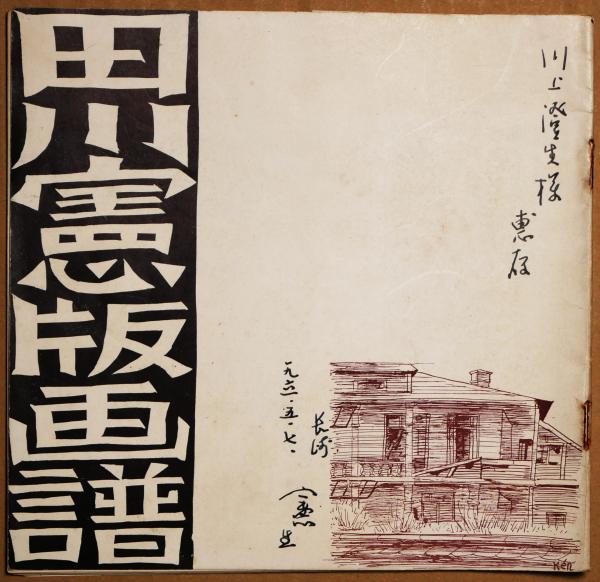 田川憲版画譜
川上澄生様
惠存
一九六一.五.七.
長崎
憲生
KEN